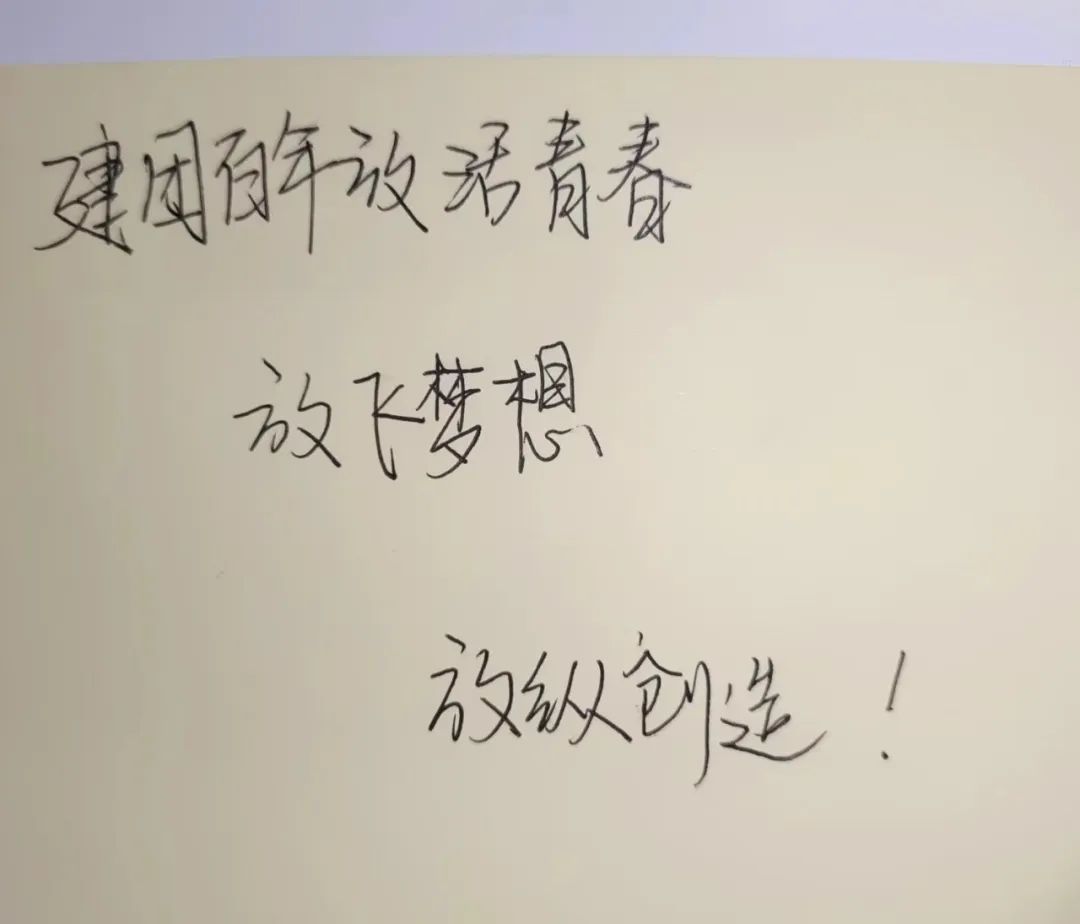 建团百年放活青春
放飞梦想
放纵创造！